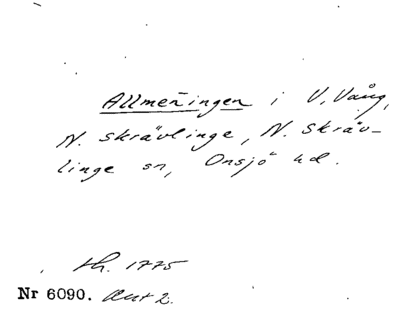 Allmen̄ingen i V. Vång,
N. Skrävlinge, N. Skräv-
linge sn, Onsjö hd.
th. 1775
Nr 6090. Aut 2.